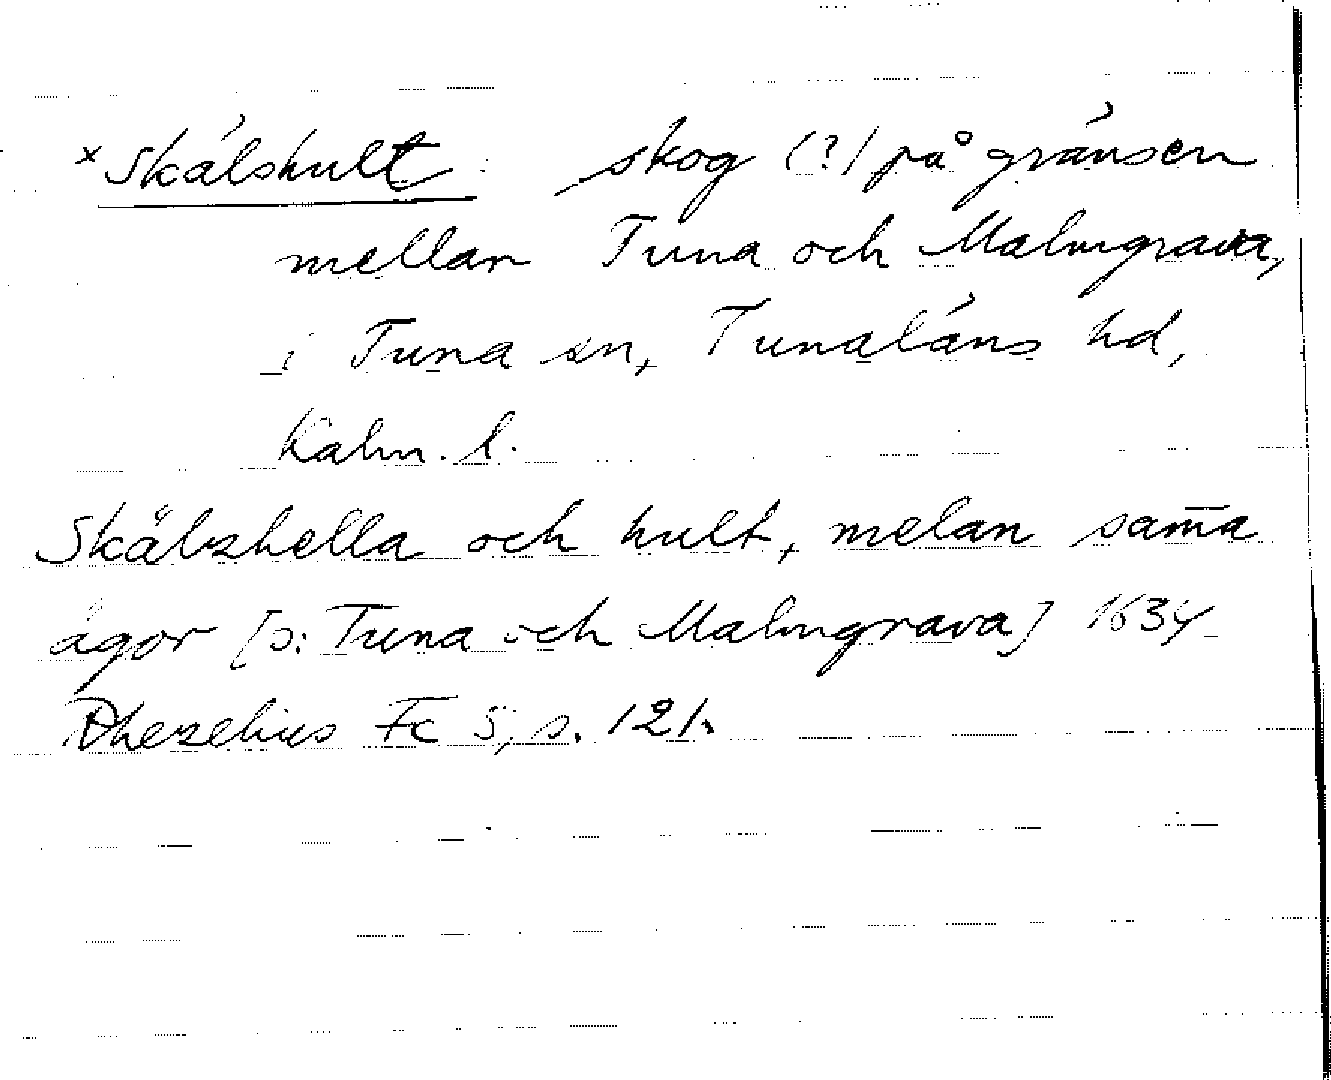 ˣSkälshult : skog (?) på gränsen
mellan Tuna och Malmgrava,
i Tuna sn, Tunaläns hd,
Kalm. l.
Skälszhella och hult, melan sam̄a
ägor [ɔ: Tuna och Malmgrava] 1634
Rhezelius Fc 5, s. 121.